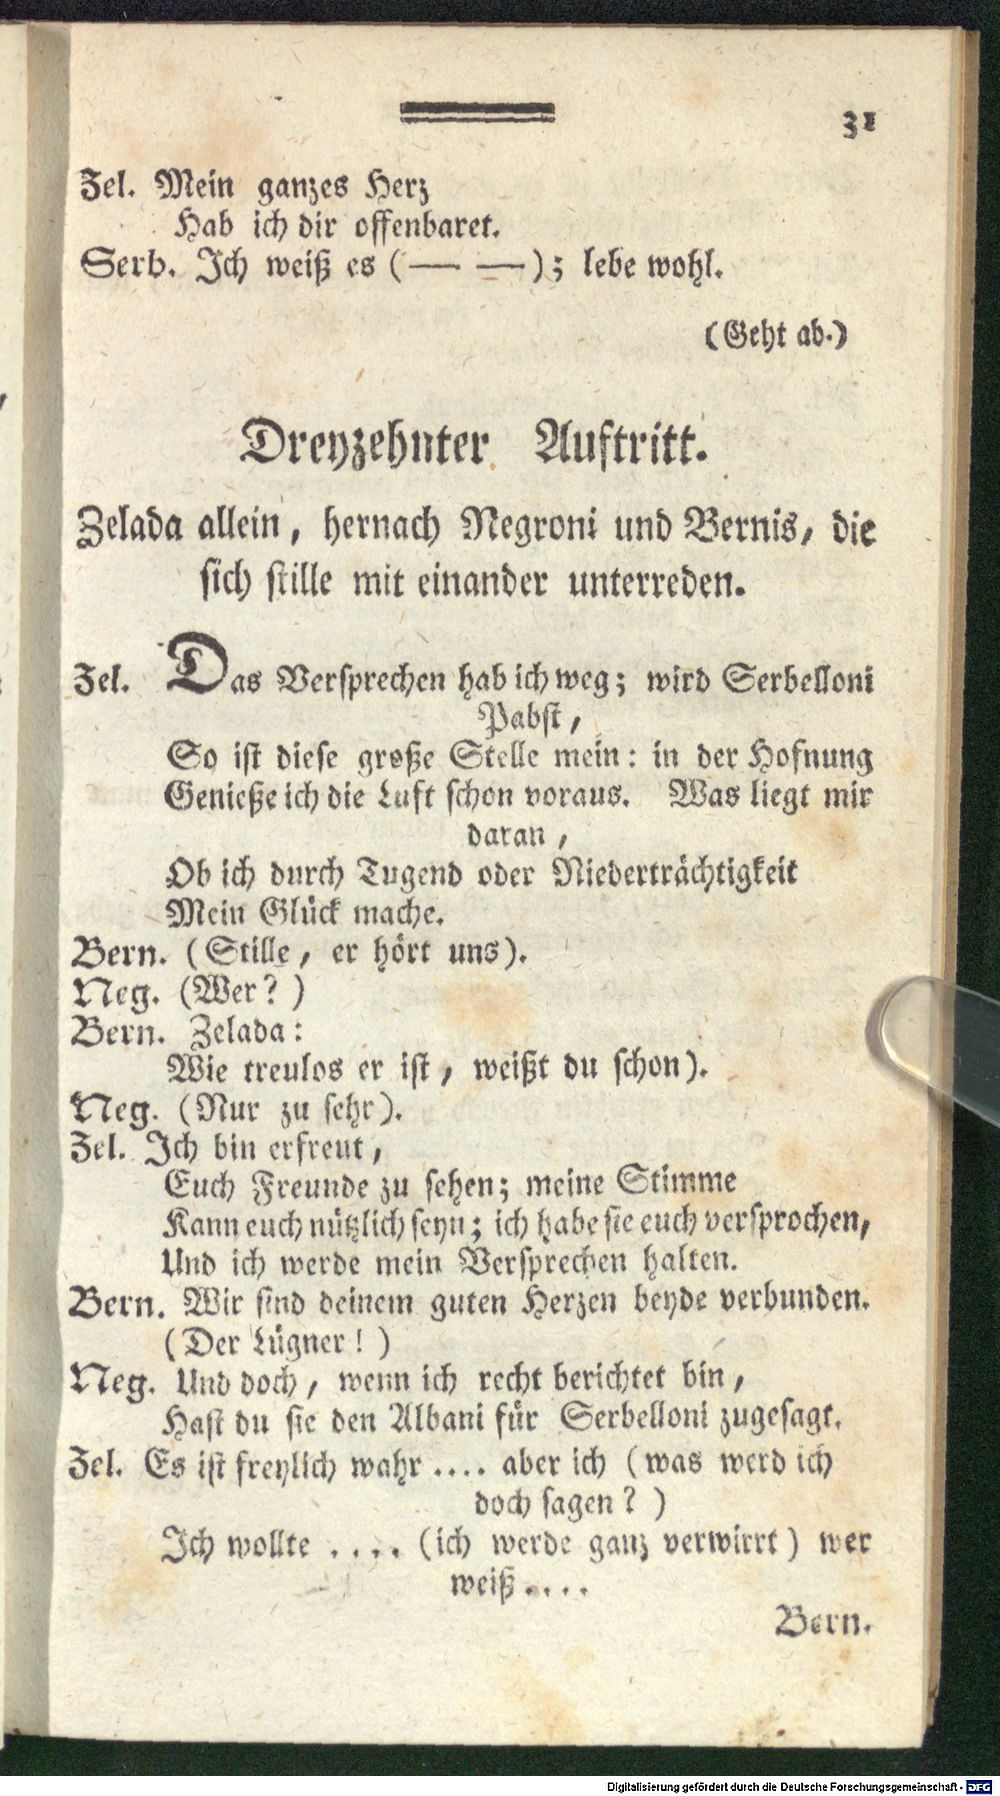 31
Zel. Mein ganzes Herz
Hab ich dir offenbaret.
Serb. Ich weiß es (— —); lebe wohl.
(Geht ab.)
Dreyzehnter Auftritt.
Zelada allein, hernach Negroni und Bernis, die
sich stille mit einander unterreden.
Zel. Das Versprechen hab ich weg; wird Serbelloni
Pabst,
So ist diese große Stelle mein: in der Hofnung
Genieße ich die Luft schon voraus. Was liegt mir
daran,
Ob ich durch Tugend oder Niederträchtigkeit
Mein Glück mache.
Bern. (Stille, er hört uns).
Neg. (Wer?)
Bern. Zelada:
Wie treulos er ist, weißt du schon).
Neg. (Nur zu sehr).
Zel. Ich bin erfreut,
Euch Freunde zu sehen; meine Stimme
Kann euch nützlich seyn; ich habe sie euch versprochen,
Und ich werde mein Versprechen halten.
Bern. Wir sind deinem guten Herzen beyde verbunden.
(Der Lügner!)
Neg. Und doch, wenn ich recht berichtet bin,
Hast du sie den Albani für Serbelloni zugesagt.
Zel. Es ist freylich wahr .... aber ich (was werd ich
doch sagen?)
Ich wollte .... (ich werde ganz verwirrt) wer
weiß ....
Bern.
Digitalisierung gefördert durch die Deutsche Forschungsgemeinschaft - DFG